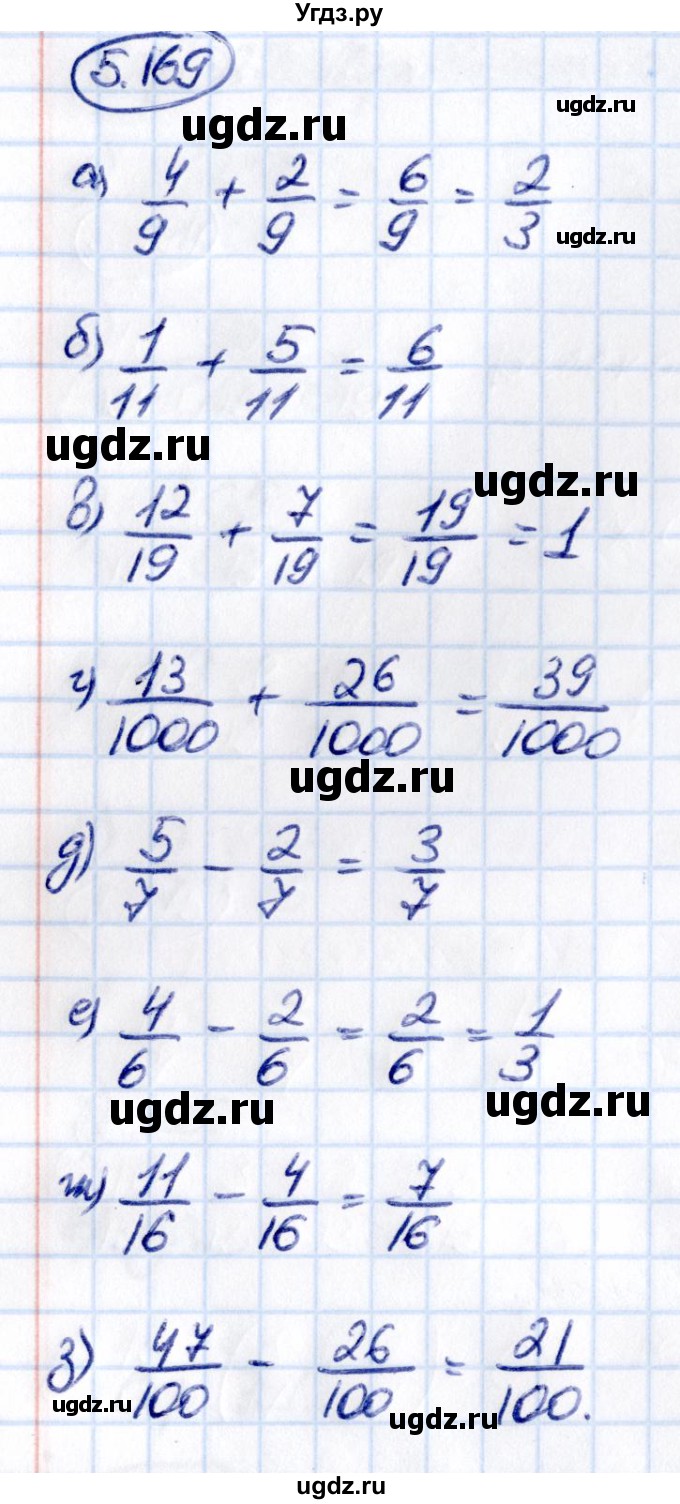 Угдз.ру
5.169
ugdz.ru
ugdz.ru
а) 4/9 + 2/9 = 6/9 = 2/3
ugdz.ru
б) 1/11 + 5/11 = 6/11
ugdz.ru
ugdz.ru
в) 12/19 + 7/19 = 19/19 = 1
г) 13/1000 + 26/1000 = 39/1000
ugdz.ru
д) 5/7 - 2/7 = 3/7
е) 4/6 - 2/6 = 2/6 = 1/3
ugdz.ru
ugdz.ru
ж) 11/16 - 4/16 = 7/16
з) 47/100 - 26/100 = 21/100.
ugdz.ru
ugdz.ru
ugdz.ru